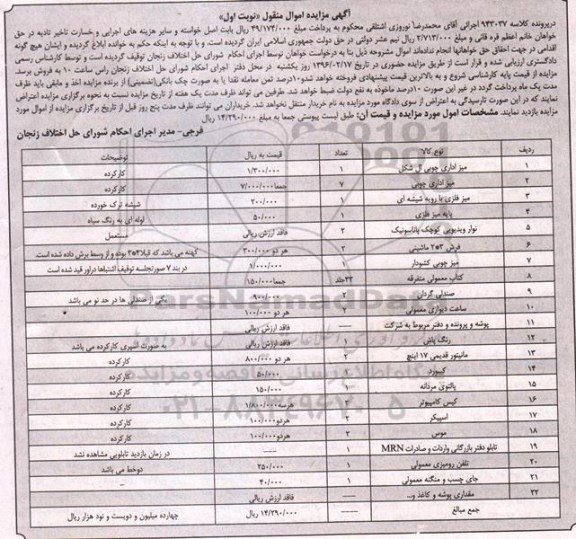 آگهی مزایده اموال منقول «نوبت اول»
درپرونده کلاسه ۹۴۳۰۳۷ اجرائی آقای محمدرضا نوروزی اشتلقی محکوم به پرداخت مبلغ ۴۹/۱۷۴/۰۰۰ ریال بابت اصل خواسته و سایر هزینه های اجرایی و خسارت تاخیر تادیه در حق
خواهان خانم اعظم قره قانی و مبلغ ۲/۷۱۳/۰۰۰ ریال نیم عشر دولتی در حق دولت جمهوری اسلامی ایران گردیده است. و با توجه به اینکه حکم به خوانده ابلاغ گردیده و ایشان هیچ گونه
اقدامی در جهت احقاق حق خواهانها انجام نداده‌اند اموال مشروحه ذیل بنا به درخواست خواهان توسط اجرای احکام شورای حل اختلاف زنجان توقیف گردیده است و توسط کارشناس رسمی
دادگستری ارزیابی شده و قرار است از طریق مزایده حضوری در تاریخ ۱۳۹۶/۰۲/۱۷ روز یکشنبه در محل دفتر اجرای احکام شورای حل اختلاف زنجان راس ساعت ۱۰ به فروش برسد.
مزایده از قیمت پایه کارشناسی شروع و به بالاترین قیمت پیشنهادی فروخته خواهد شدو۱۰درصد ثمن معامله نقدا یا به صورت چک بانکی(تضمینی) از برنده مزایده اخذ و مابقی باید ظرف
مدت یک ماه پرداخت گردد در غیر این صورت ۱۰درصد ماخوذه به نفع دولت ضبط خواهد شد. طرفین می تواند ظرف مدت یک هفته از تاریخ مزایده نسبت به نحوه برگزاری مزایده اعتراض
نمایند که در این صورت تارسیدگی به اعتراض از سوی دادگاه مورد مزایده به نام خریدار منتقل نخواهد شد. خریداران می توانند ظرف مدت پنج روز قبل از تاریخ برگزاری مزایده از اموال مورد
مزایده بازدید نمایند. مشخصات امول مورد مزایده و قیمت آن: طبق لیست پیوستی جمعا به مبلغ ۱۴/۲۹۰/۰۰۰ ریال
فرجی- مدیر اجرای احکام شورای حل اختلاف زنجان
ردیف نوع کالا تعداد قیمت به ریال توضیحات
۱ میز اداری چوبی ال شکل ۱ ۱/۳۰۰/۰۰۰ کارکرده
۲ میز اداری چوبی ۷ جمعا۷/۰۰۰/۰۰۰ کارکرده
۳ میز فلزی با رویه شیشه ای ۱ ۲۰۰/۰۰۰ شیشه ترک خورده
۴ پایه میز فلزی ۱ ۵۰/۰۰۰ لوله ای به رنگ سیاه
۵ نوار ویدیویی کوچک پاناسونیک ۲ فاقد ارزش ریالی مستعمل
۶ فرش ۳*۲ ماشینی ۲ هر دو ۳۰۰/۰۰۰ کهنه می باشد که قبلا۴*۳ بوده و از وسط برش داده شده است.
۷ میز چوبی کشودار ۱ ۱/۰۰۰/۰۰۰ در بند ۷ صورتجلسه توقیف اشتباها دراور قید شده است
۸ کتاب معمولی متفرقه ۴۴جلد جمعا۱۵۰/۰۰۰
۹ صندلی گردان ۲ ۹۰۰/۰۰۰ یکی از صندلی ها در حد نو می باشد
۱۰ ساعت دیواری معمولی ۲ هر دو ۱۰۰/۰۰۰
۱۱ پوشه و پرونده و دفتر مربوط به شرکت ----- فاقد ارزش ریالی
۱۲ رنگ پاش ۱ فاقد ارزش ریالی به صورت اسپری کارکرده می باشد
۱۳ مانیتور قدیمی ۱۷ اینچ ۲ هر دو ۸۰۰/۰۰۰ کارکرده
۱۴ کیبورد ۱ ۵۰/۰۰۰ کارکرده
۱۵ پالتوی مردانه ۱ ۱۵۰/۰۰۰ کارکرده
۱۶ کیس کامپیوتر ۳ هرسه۱/۸۰۰/۰۰۰ کارکرده
۱۷ اسپیکر ۲ هردو۱۰۰/۰۰۰ کارکرده
۱۸ موس ۲ هردو۱۰۰/۰۰۰ کارکرده
۱۹ تابلو دفتر بازرگانی واردات و صادرات MRN ۱ ----- در زمان بازدید تابلویی مشاهده نشد
۲۰ تلفن رومیزی معمولی ۱ ۲۵۰/۰۰۰ دوخط می باشد
۲۱ جای چسب و منگنه معمولی ۱ ۴۰/۰۰۰ –
۲۲ مقداری پوشه و کاغذ و... ---- فاقد ارزش ریالی
جمع مبالغ ----- ۱۴/۲۹۰/۰۰۰ ریال چهارده میلیون و دویست و نود هزار ریال
ParsNamadData
۰۲۱-۸۸۳۴۹۶۷۰-۵